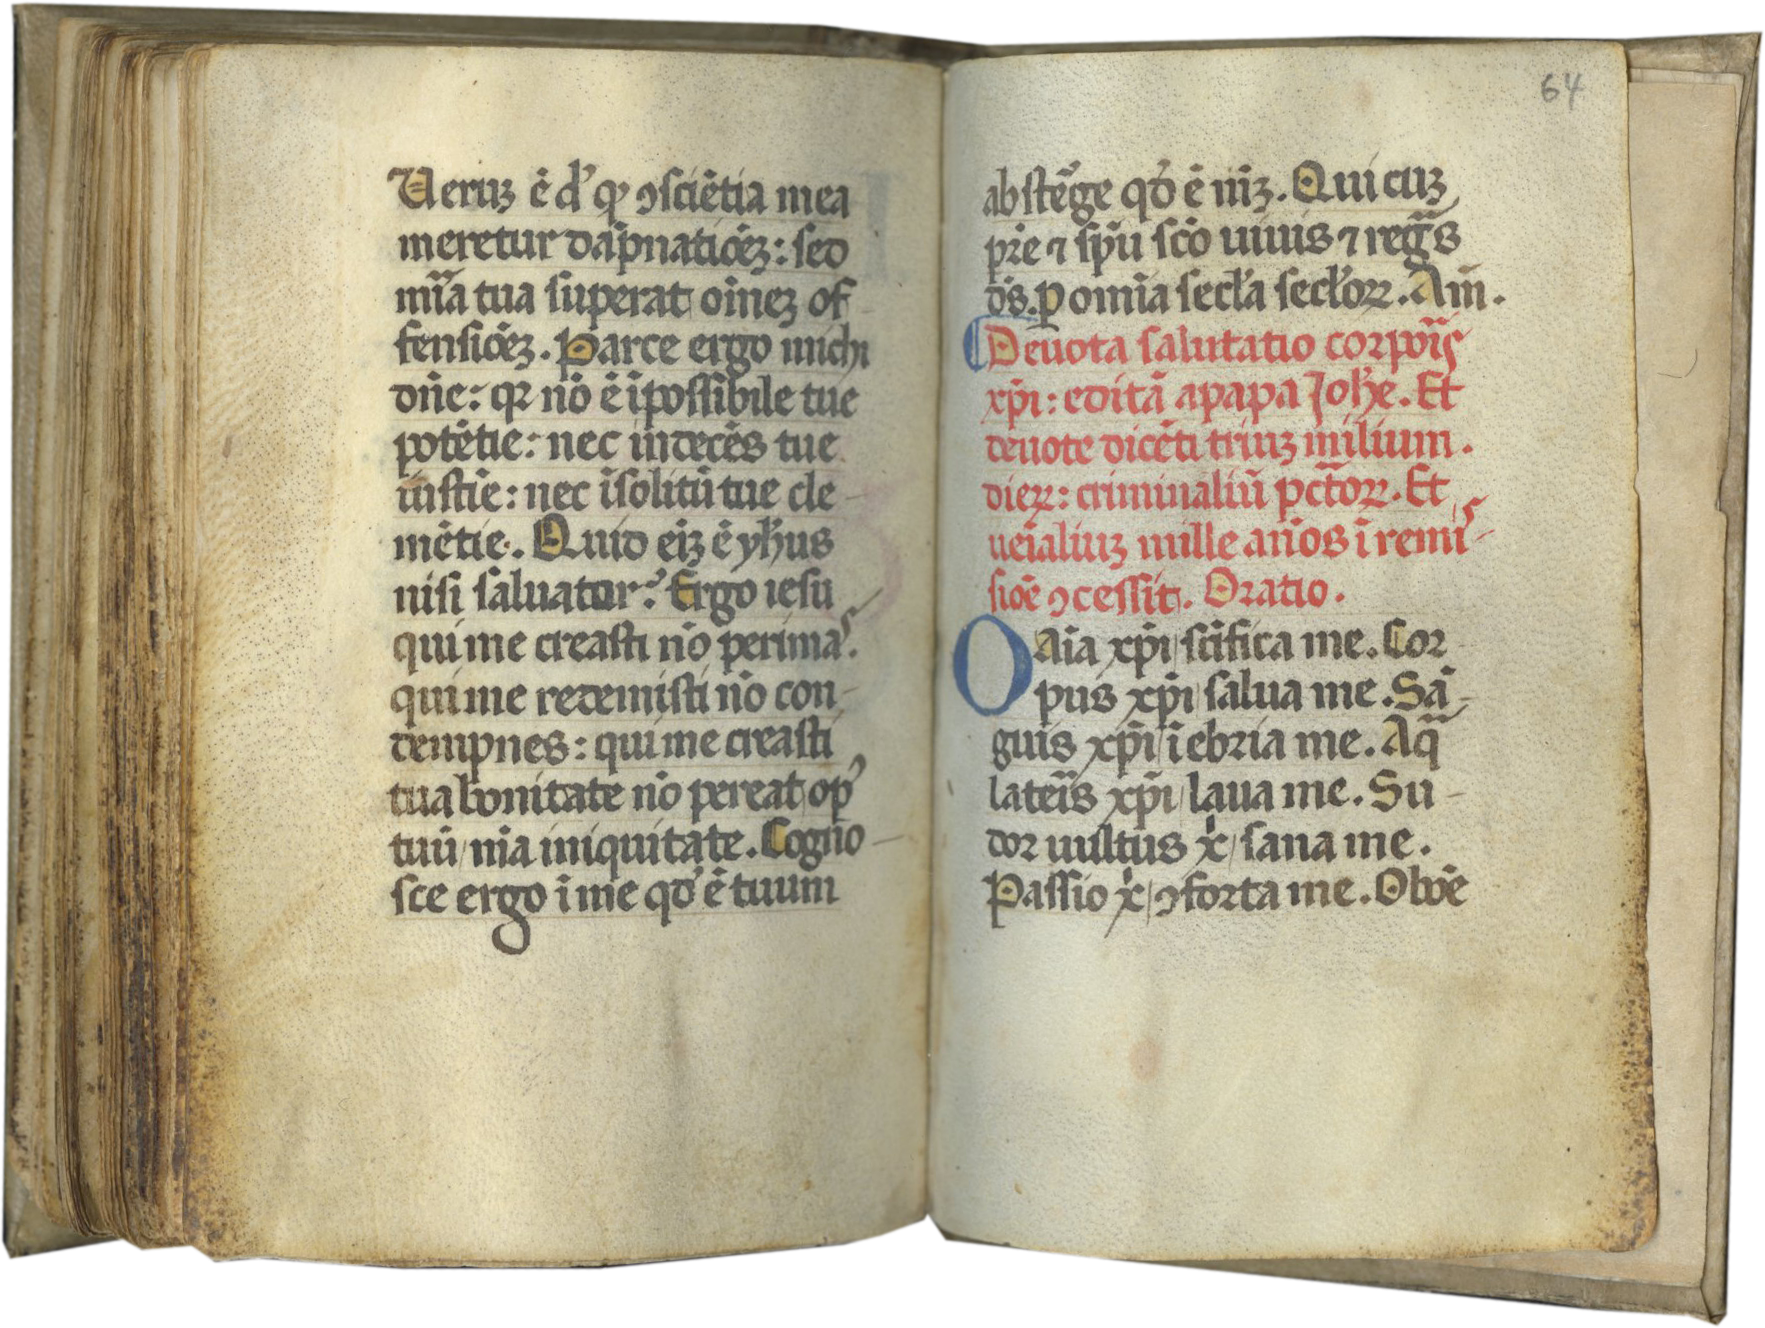 Ueruꝫ ē d' qͥ ꝯsciētia mea
meretur dāpnatiōeꝫ: sed
mīa tua superat oīneꝫ of
fensiōeꝫ. Parce ergo michi
dn̄e: qꝛ nō ē īpossibile tue
potētie: nec indecēs tue
iustīe: nec īsolitū tue cle-
mētie. Quid eiꝫ ē yħus
nisi saluator? Ergo iesu
qui me creasti nō perimas.
qui me redemisti nō con-
dempnes: qui me creasti
tua bonitate nō pereat op'
tuū/ mā iniquitate. Cogno-
sce ergo ī me qd' ē tuum
64
abstēge qd' ē mīꝫ. Qui cuꝫ
pr̄e ⁊ sp̄u scō uiuis ⁊ regͣs
ds̄. ꝑ om̄ia secl'a secl'oꝝ. Am̄.
Deuota salutatio corpoīs
xp̄i: editā a papa Joħe. Et
deuote dicēti triuꝫ milium.
dieꝝ: criminaliū pctōꝝ. Et
ueīaliuꝫ mille an̄os ī remis-
siōē ꝯcessit. Oratio.
O Aīa xp̄i/ scīfica me. Cor
pus xp̄i/ salua me. Sā-
guis xp̄i/ īebria me. Aqͣ
lateīs xp̄i/ laua me. Su-
dor uultus x̓/ sana me.
Passio x̓/ ꝯforta me. O boē